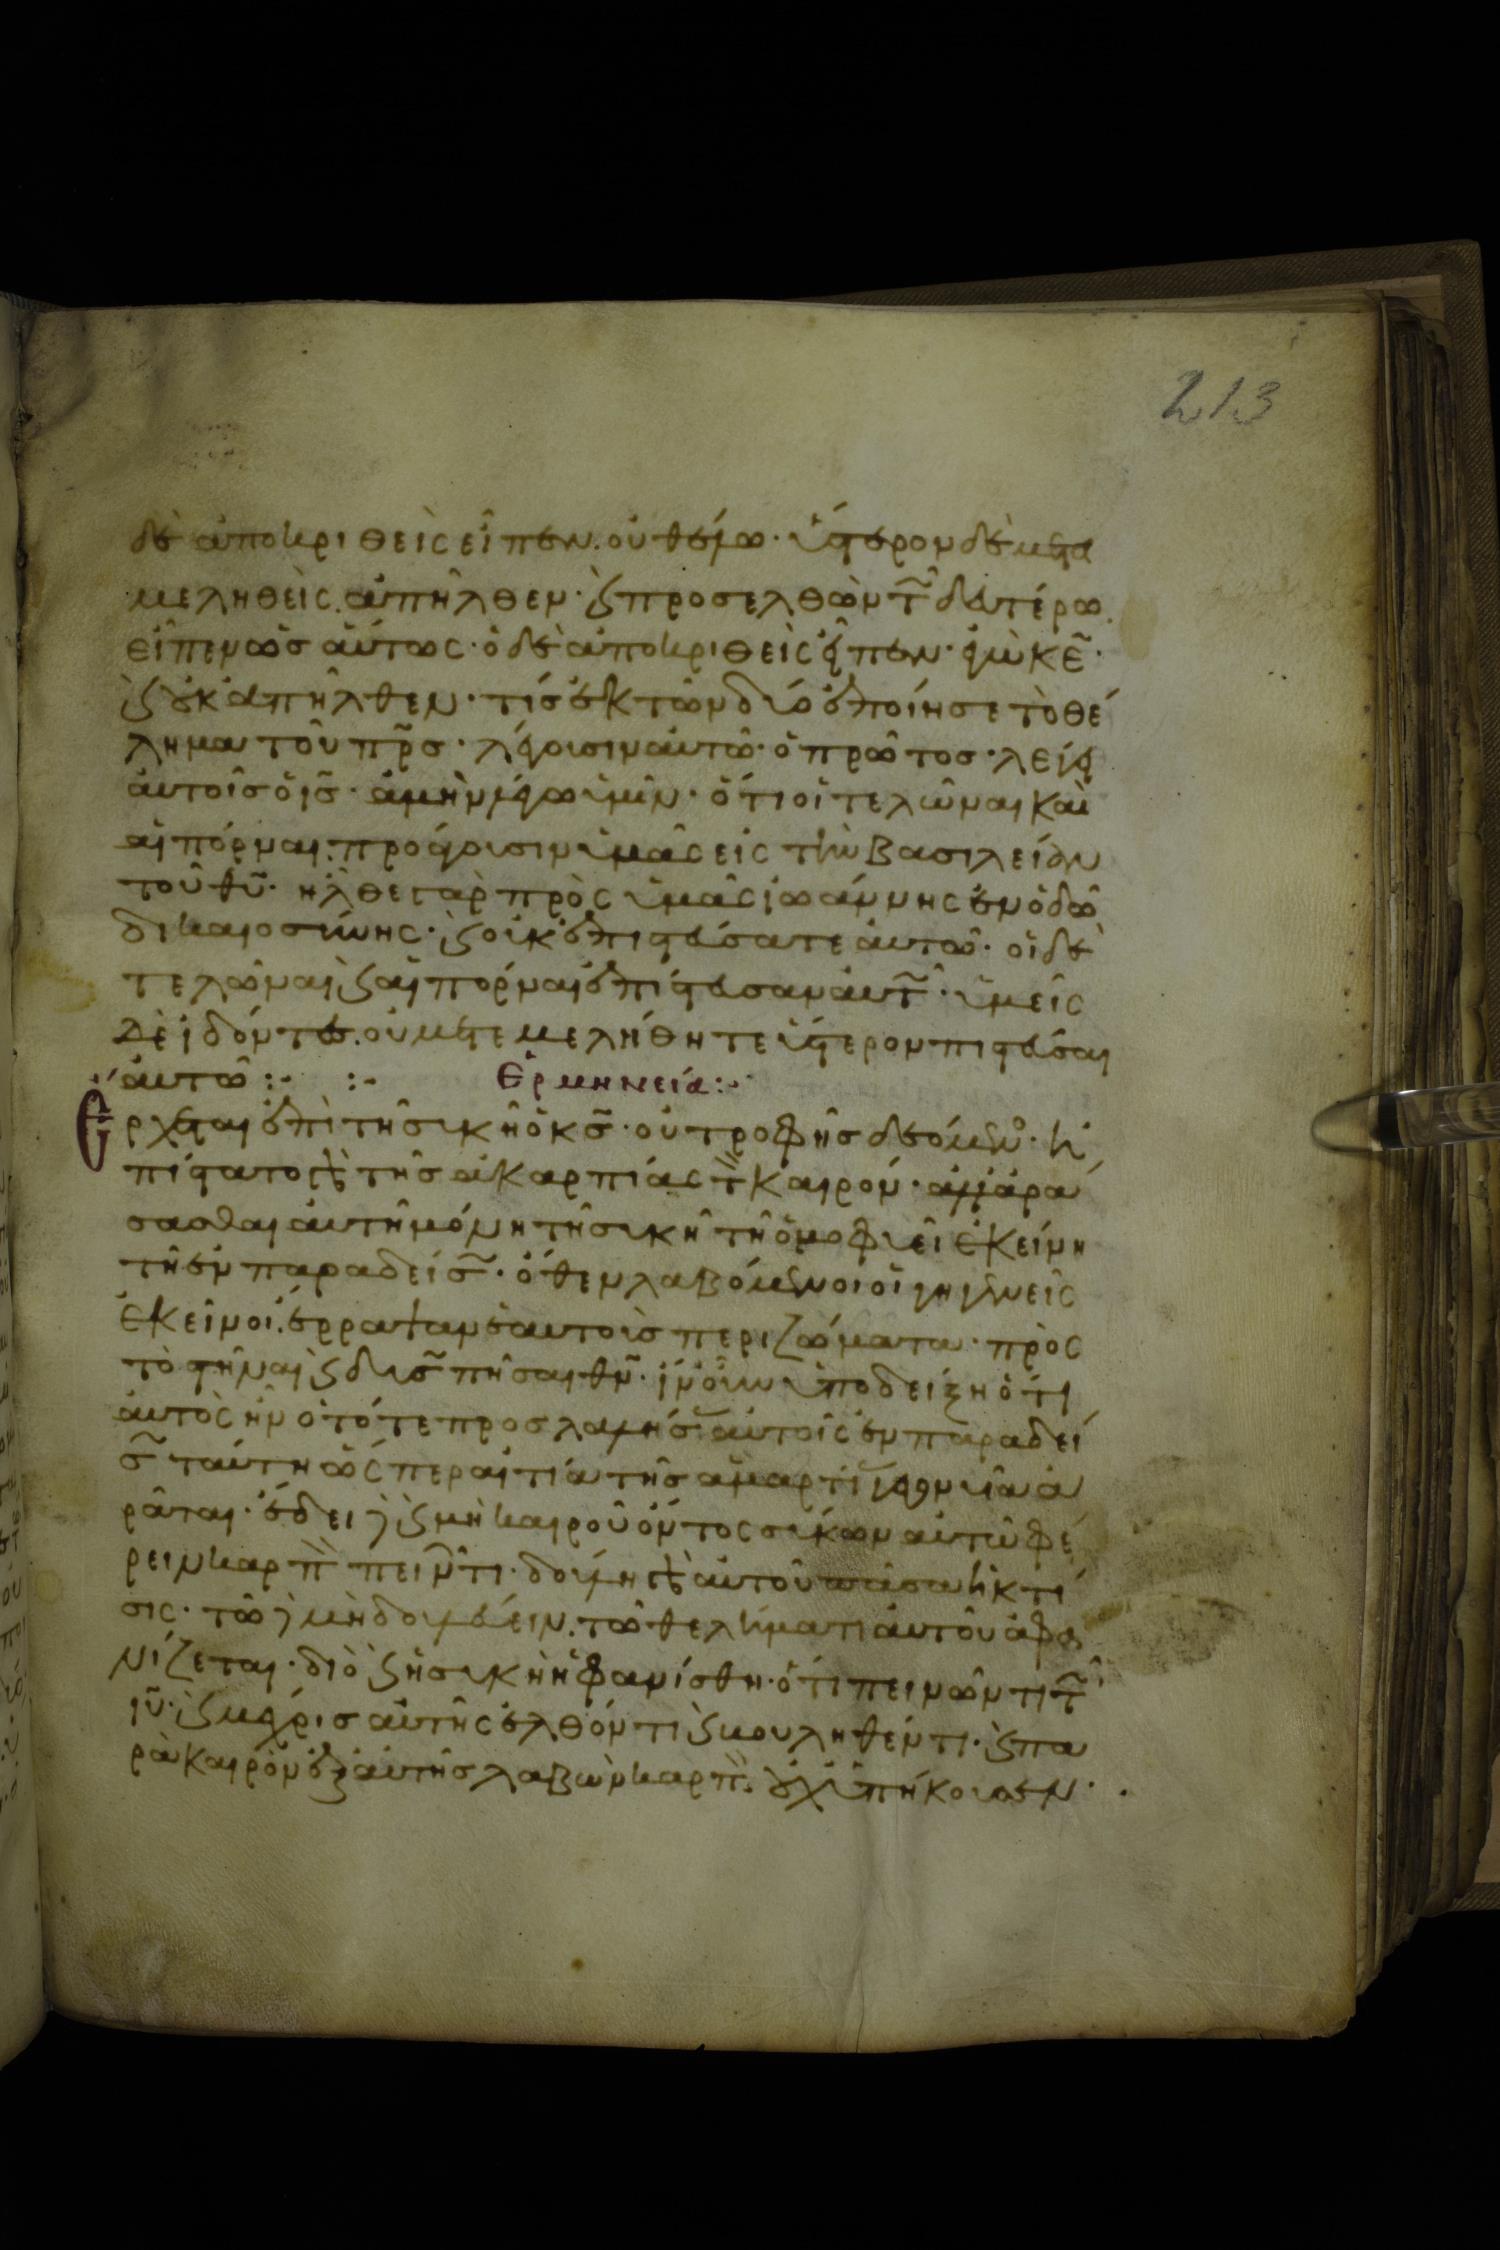 213
δὲ ἀποκριθεὶς εἶπεν. οὐ θέλω· ὕστερον δὲ μετα
μεληθεὶς. ἀπῆλθεν· ϗ προσελθὼν τ῀ δευτέρω.
εἶπεν ὡσ αύτως· ὁ δὲ ἀποκριθεὶς εἶπεν· ἐγὼ κε̃·
ϗ οὐκ ἀπῆλθεν· τίσ ἐκ τῶν δύο ἐποίησε τὸ θέ
λημα τοῦ πρ̃σ· λέγουσιν αὐτῶ· ὁ πρῶτοσ· λέγει
αὐτοῖσ ὁ ισ̃· ἀμὴν λέγω ὑμῖν· ὅτι οἱ τελῶναι καὶ
αἱ πόρναι. προάγουσιν ὑμᾶς εἰς τὴν βασιλείαν
τοῦ θυ̃· ἦλθε γὰρ πρὸς ὑμᾶς ἰωάννης ἐν ὁδῶ
δικαιοσύνης· ϗ οὐκ ἐπιστεύσατε αὐτῶ· οἱ δὲ
τελῶναι ϗ αἱ πόρναι ἐπίστευσαν αὐτ῀· ὑμεῖς
δὲ ἰδόντες. οὐ μετεμελήθητε ὕστερον πιστεύσαι
αὐτῶ :· :· Ερμηνεία :·
Ερχεται ἐπὶ τῆ συκῆ ὁ κσ̃· οὐ τροφῆσ δεόμενο· ἠ
πίστατο γὰρ τῆσ ἀκαρπίας τ̀ καιρόν· ἀλλ' ἀρά
σασθαι αὐτῆ μόνη τῆ συκῆ τῆ ὁμοφυεῖ ἐκείνη
τῆ ἐν παραδείσ῀· ὅθεν λαβόμενοι οἱ γηγενεῖς
ἐκεῖνοι. ἔρραψαν ἑαυτοῖσ περιζώματα· πρὸς
τὸ στῆναι ϗ δυσ῀πῆσαι θν̃· ἵν' οὖν ὑποδείξη ὅτι
αὐτὸς ἦν ὁ τότε προσλαλήσ αὐτοῖς ἐν παραδεί
σ῀ ταύτη ὥσπερ αἰτία τῆσ ἁμαρτί γεγονυῖα ἀ
ρᾶται· ἔδει ϗ μὴ καιροῦ ὄντος σύκων αὐτῶ φέ
ρειν καρπ̀ πειν῀τι· δούλη γὰρ αὐτοῦ πᾶσα ἡ κτί
σις· τῶ μὴ δουλεύειν. τῶ θελήματι αὐτοῦ ἀφα
νίζεται· διὸ ϗ ἡ συκῆ ἠφανίσθη· ὅτι πεινῶντι τ῀
ιυ̃· ϗ μέχρισ αὐτῆς ἐλθόντι ϗ βουληθέντι· ϗ πα
ρὰ καιρὸν ἐξ αὐτῆσ λαβὼν καρπ̀. οὐχ ὑπήκουσεν·